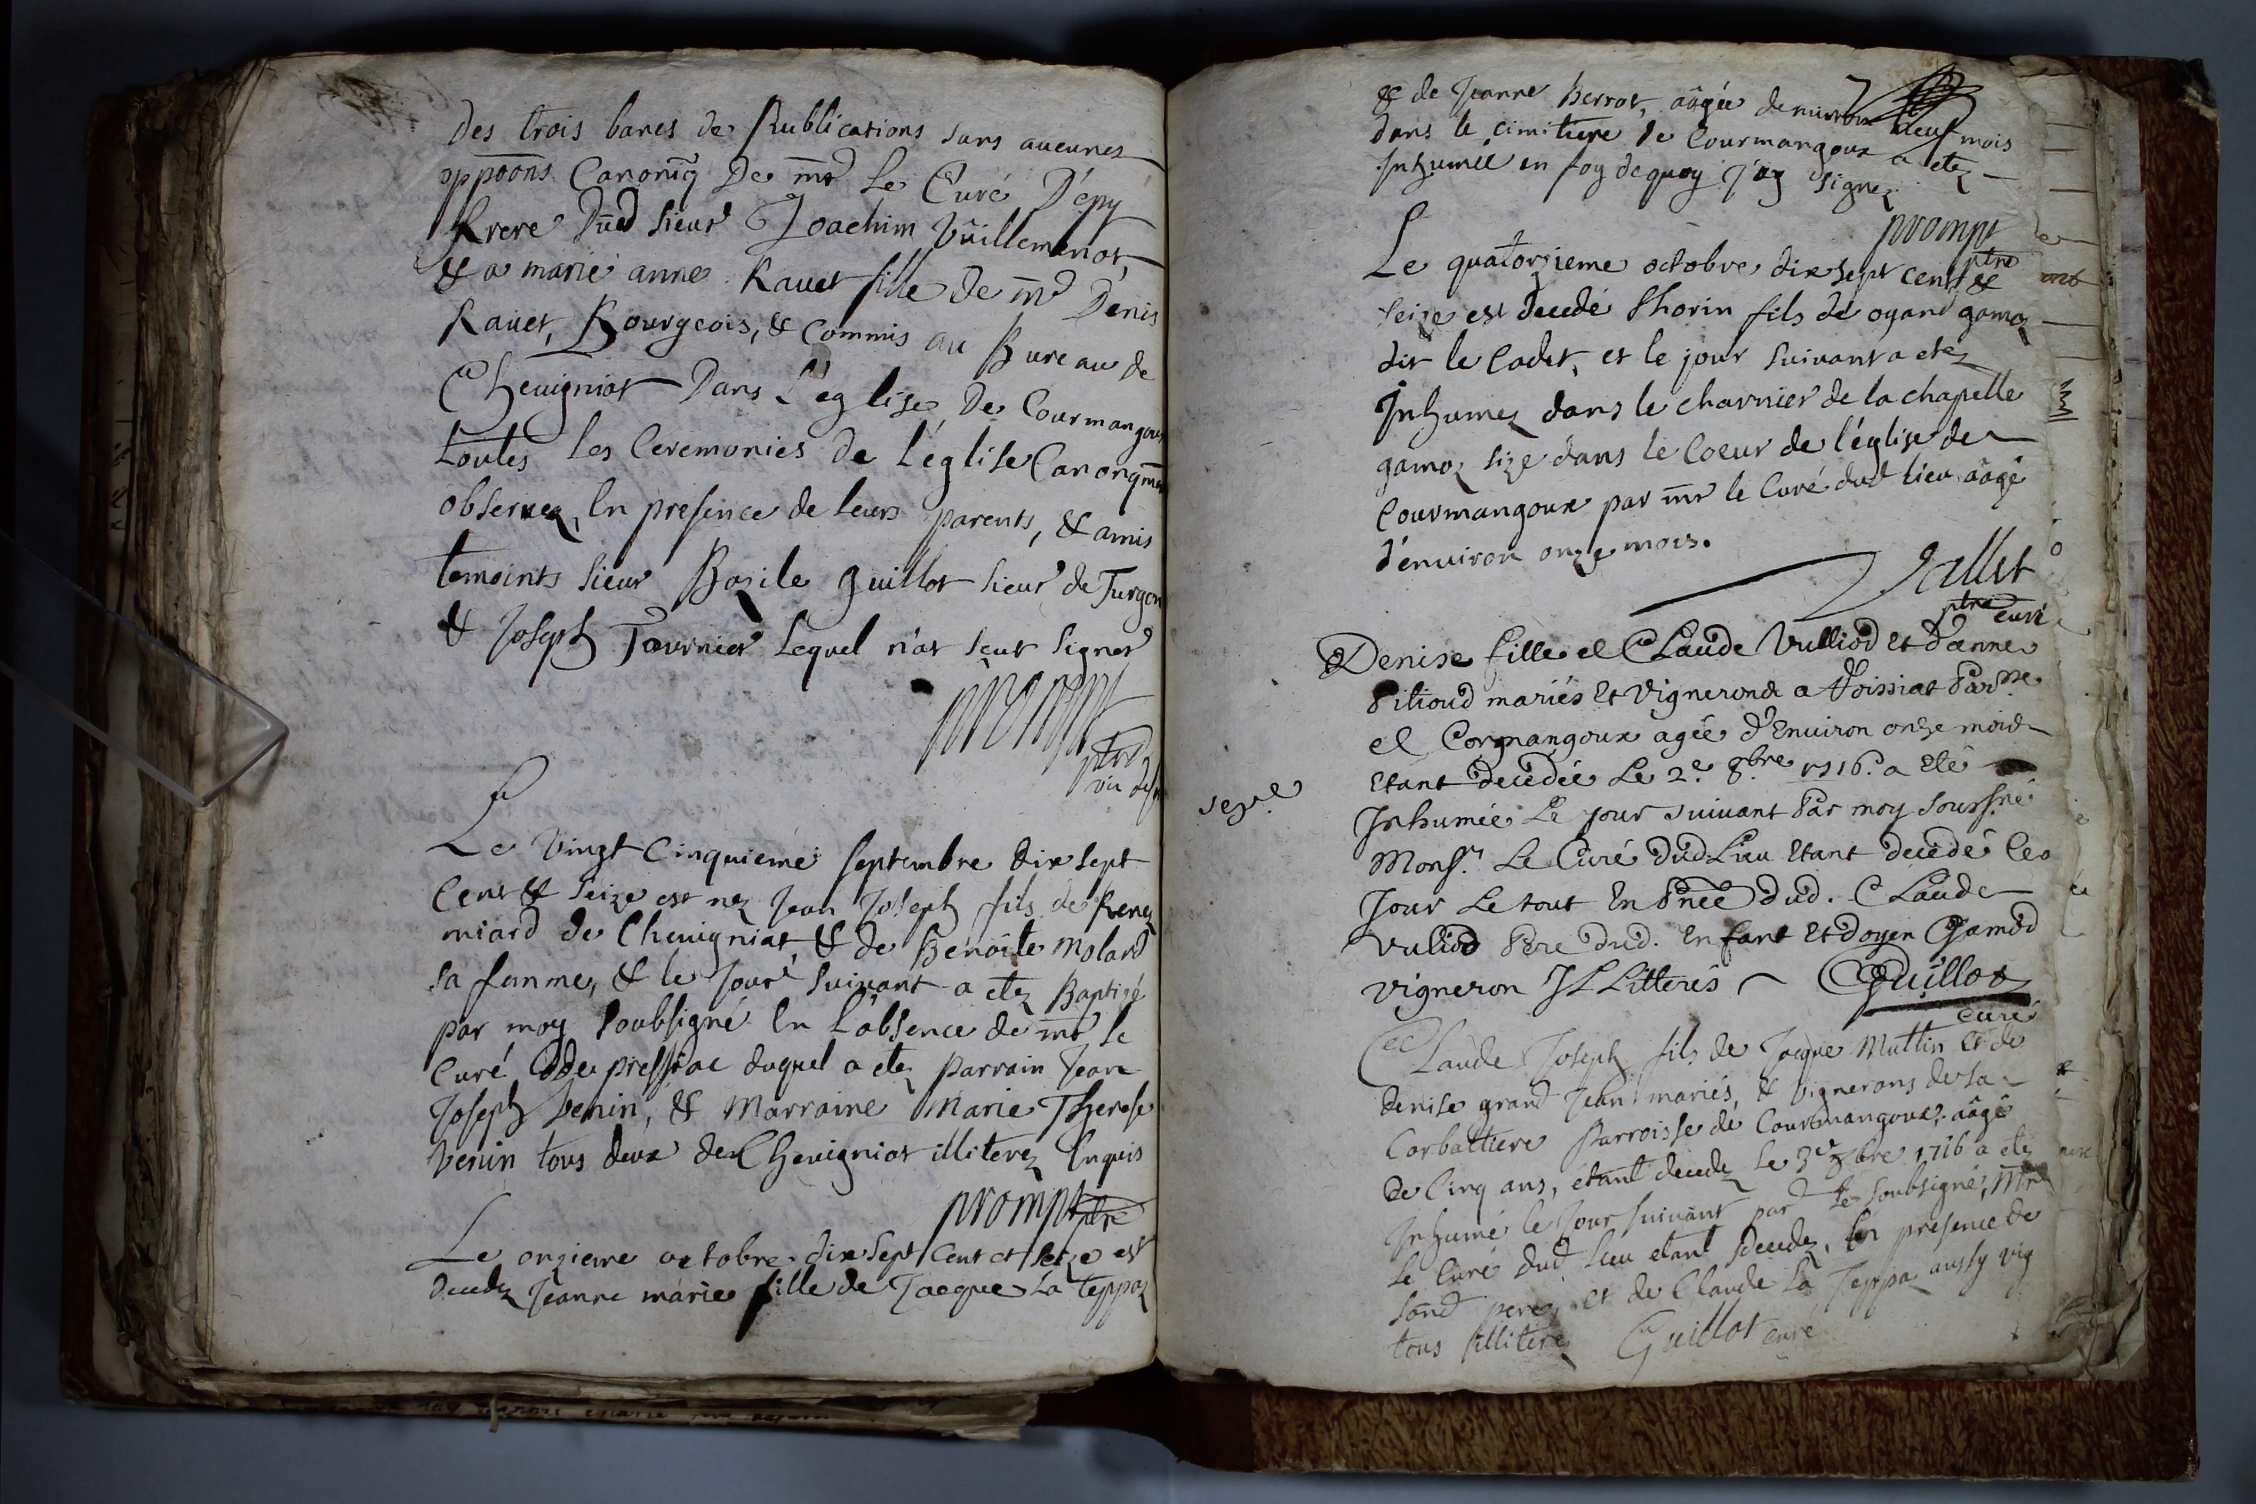 des trois bancs de Publications sans aucunes
oppoõns Canoniq De mr Le Curé D'épy
frere dud sieur Joachim Vuillemenot,
& a marie anne Ravet fille de mr Denis
Ravet, Bourgeois, & Commis au Bureau de
Chevigniat Dans L'eglise De Courmangoux
toutes les Ceremonies de L'église Canoniqmt
observez, En presence de leurs parents, & amis
temoints sieur Bazile guillot sieur de Turgon
& Joseph Tournier Lequel n'at sçeut signer
prompt
ptre
Le Vingt Cinquieme septembre dix sept
Cent & seize est nez Jean Joseph fils de Renez
miard de Chevigniat, & de Benoite Molard
sa femme, & le Jour suivant a etez Baptizé
par moy soubsigné En L'absence de mr le
Curé de pressiat duquel a etez parrain Jean
Joseph Venin, & Marraine Marie Therese
Venin tous deux de Chevigniat illiterez Enquis
prompt ptre
Le onzieme octobre dix sept Cent et seize est
decedez Jeanne marie fille de Jacque La teppaz
& de Jeanne Berrot, aâgée denviron neuf mois
dans le cimitiere de Courmangoux a etez
Inhumée en foy de quoy j'ay signez
prompt
ptre
Le quatorzieme octobre dix sept cents &
seize est decedé Thorin fils de oyand gamoz
dit le Cadet, et le jour suivant a etez
Inhumez dans le charnier de la chapelle
gamoz size dans le Coeur de l'église de
Courmangoux par mr le Curé dud lieu aâgé
d'environ onze mois.
Vallet
ptre curé
Denise fille de Claude Vulliod et d'anne
Pitioud mariés et vignerons a Roissiat Parsse
de Cormangoux agée d'Environ onze mois
Etant decedée Le 2e. 8bre 1716. a Eté
sepre.
Inhumée Le jour suivant Par moy soussné
Monsr. Le Curé Dud. Lieu Etant decedé Ce
Jour Le tout En Pnce dud. Claude
vuliod Pere Dud. Enfant Et d'oyen Gamod
vigneron ILLitterés Guillot
curé
Claude Joseph fils de Jacque Muttin et de
denise grand Jean mariés, & vignerons de La
Corbattiere Parroisse de Courmangoux, aâgé
de Cinq ans, étant decedez Le 3e 8bre 1716 a etez
Inhumé le Jour suivant par le soubsigné, Mr
le Curé dud lieu etant decedez, En presence de
sond pere, et de Claude La Teppa aussy vig
tous illiterez Guillot curé